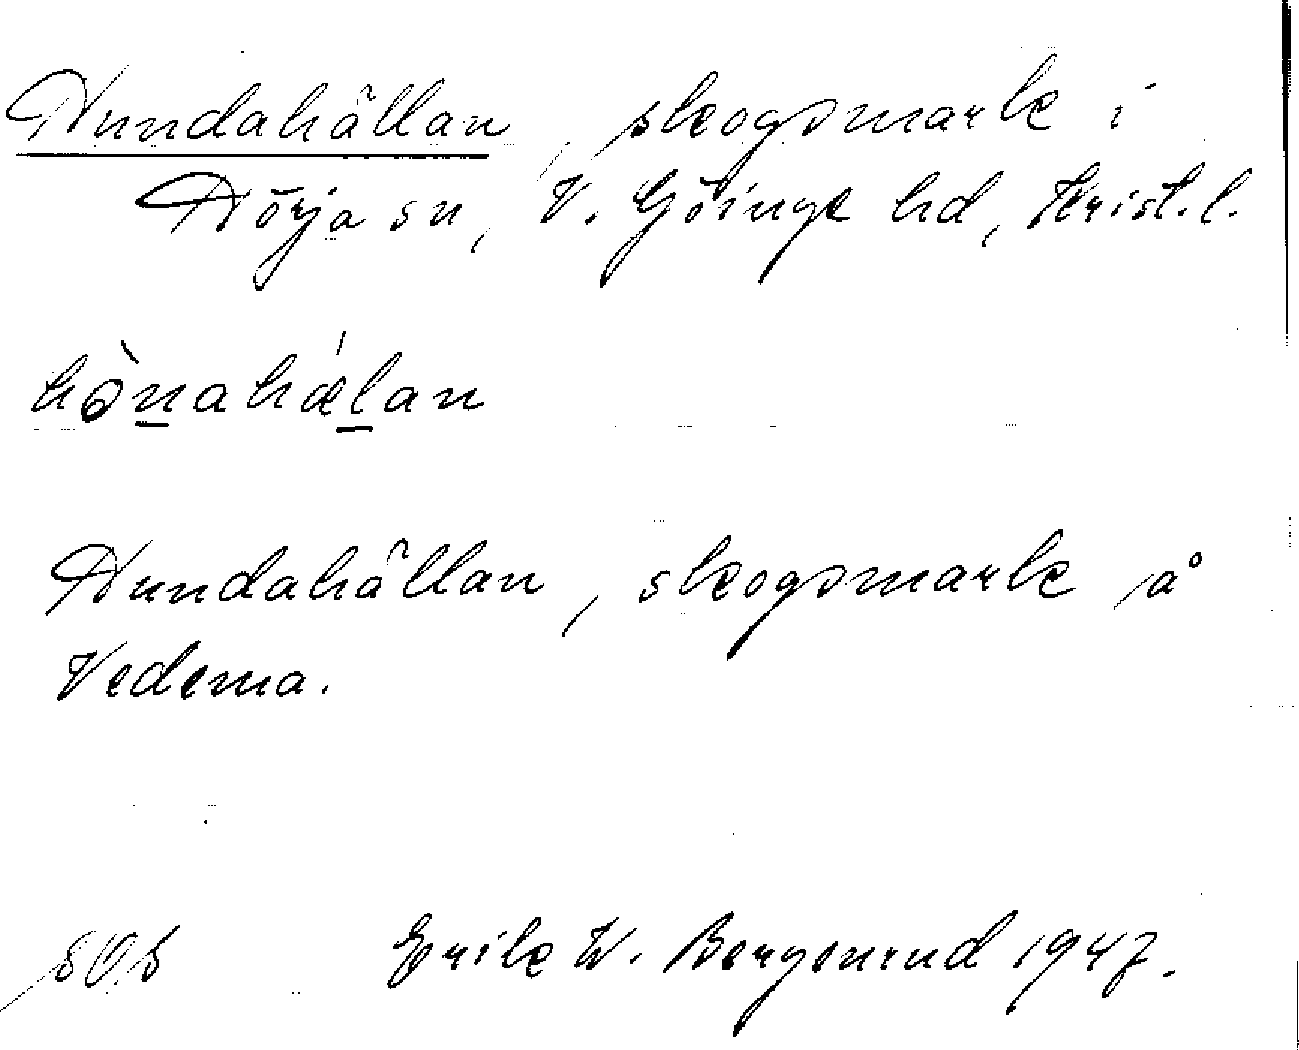 Hundahällan, skogsmark i
Hörja sn, V. Göinge hd, Krist. l.
hònahǽlan
Hundahällan, skogsmark å
Vedema.
SOS Erik W. Bergenrud 1947.